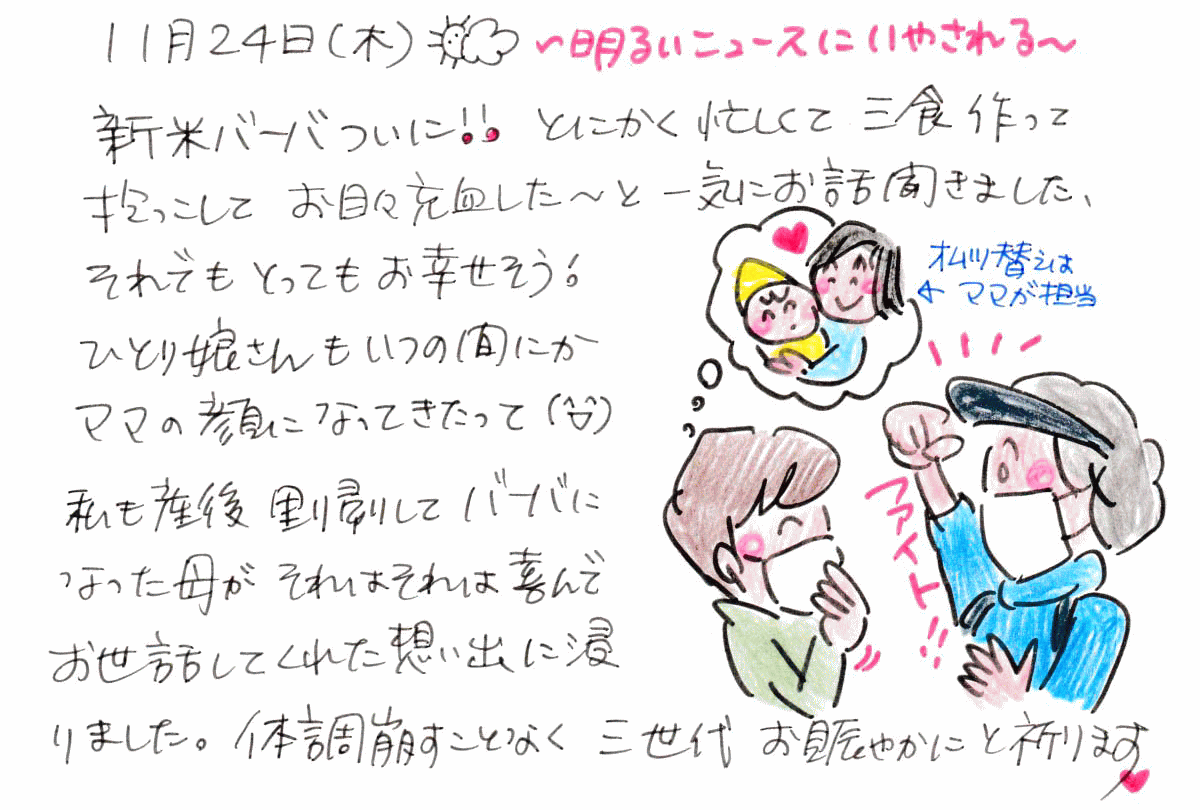 11月24日(木) ~明るいニュースにいやされる~
新米バーバついに!! とにかく忙しくて 三食作って
抱っこして お目々充血した~と 一気にお話聞きました、
それでも とっても お幸せそう!
ひとり娘さんも いつの間にか
ママの顔になってきたって (^^)
私も産後 里り帰りして バーバに
なった母が それはそれは喜んで
お世話してくれた想い出に浸
りました。体調崩すことなく 三世代 お賑やかにと祈ります
オムツ替えは
← ママが担当
ファイト!!